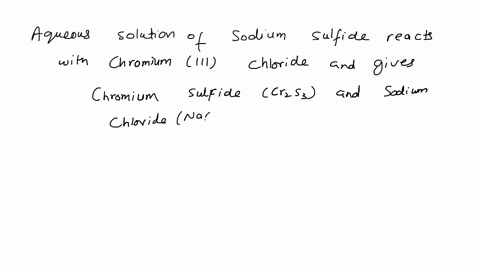 Aqueous solution of Sodium sulfide reacts
with Chromium (III) Chloride and gives
Chromium sulfide (Cr₂S₃) and Sodium
Chloride (Na